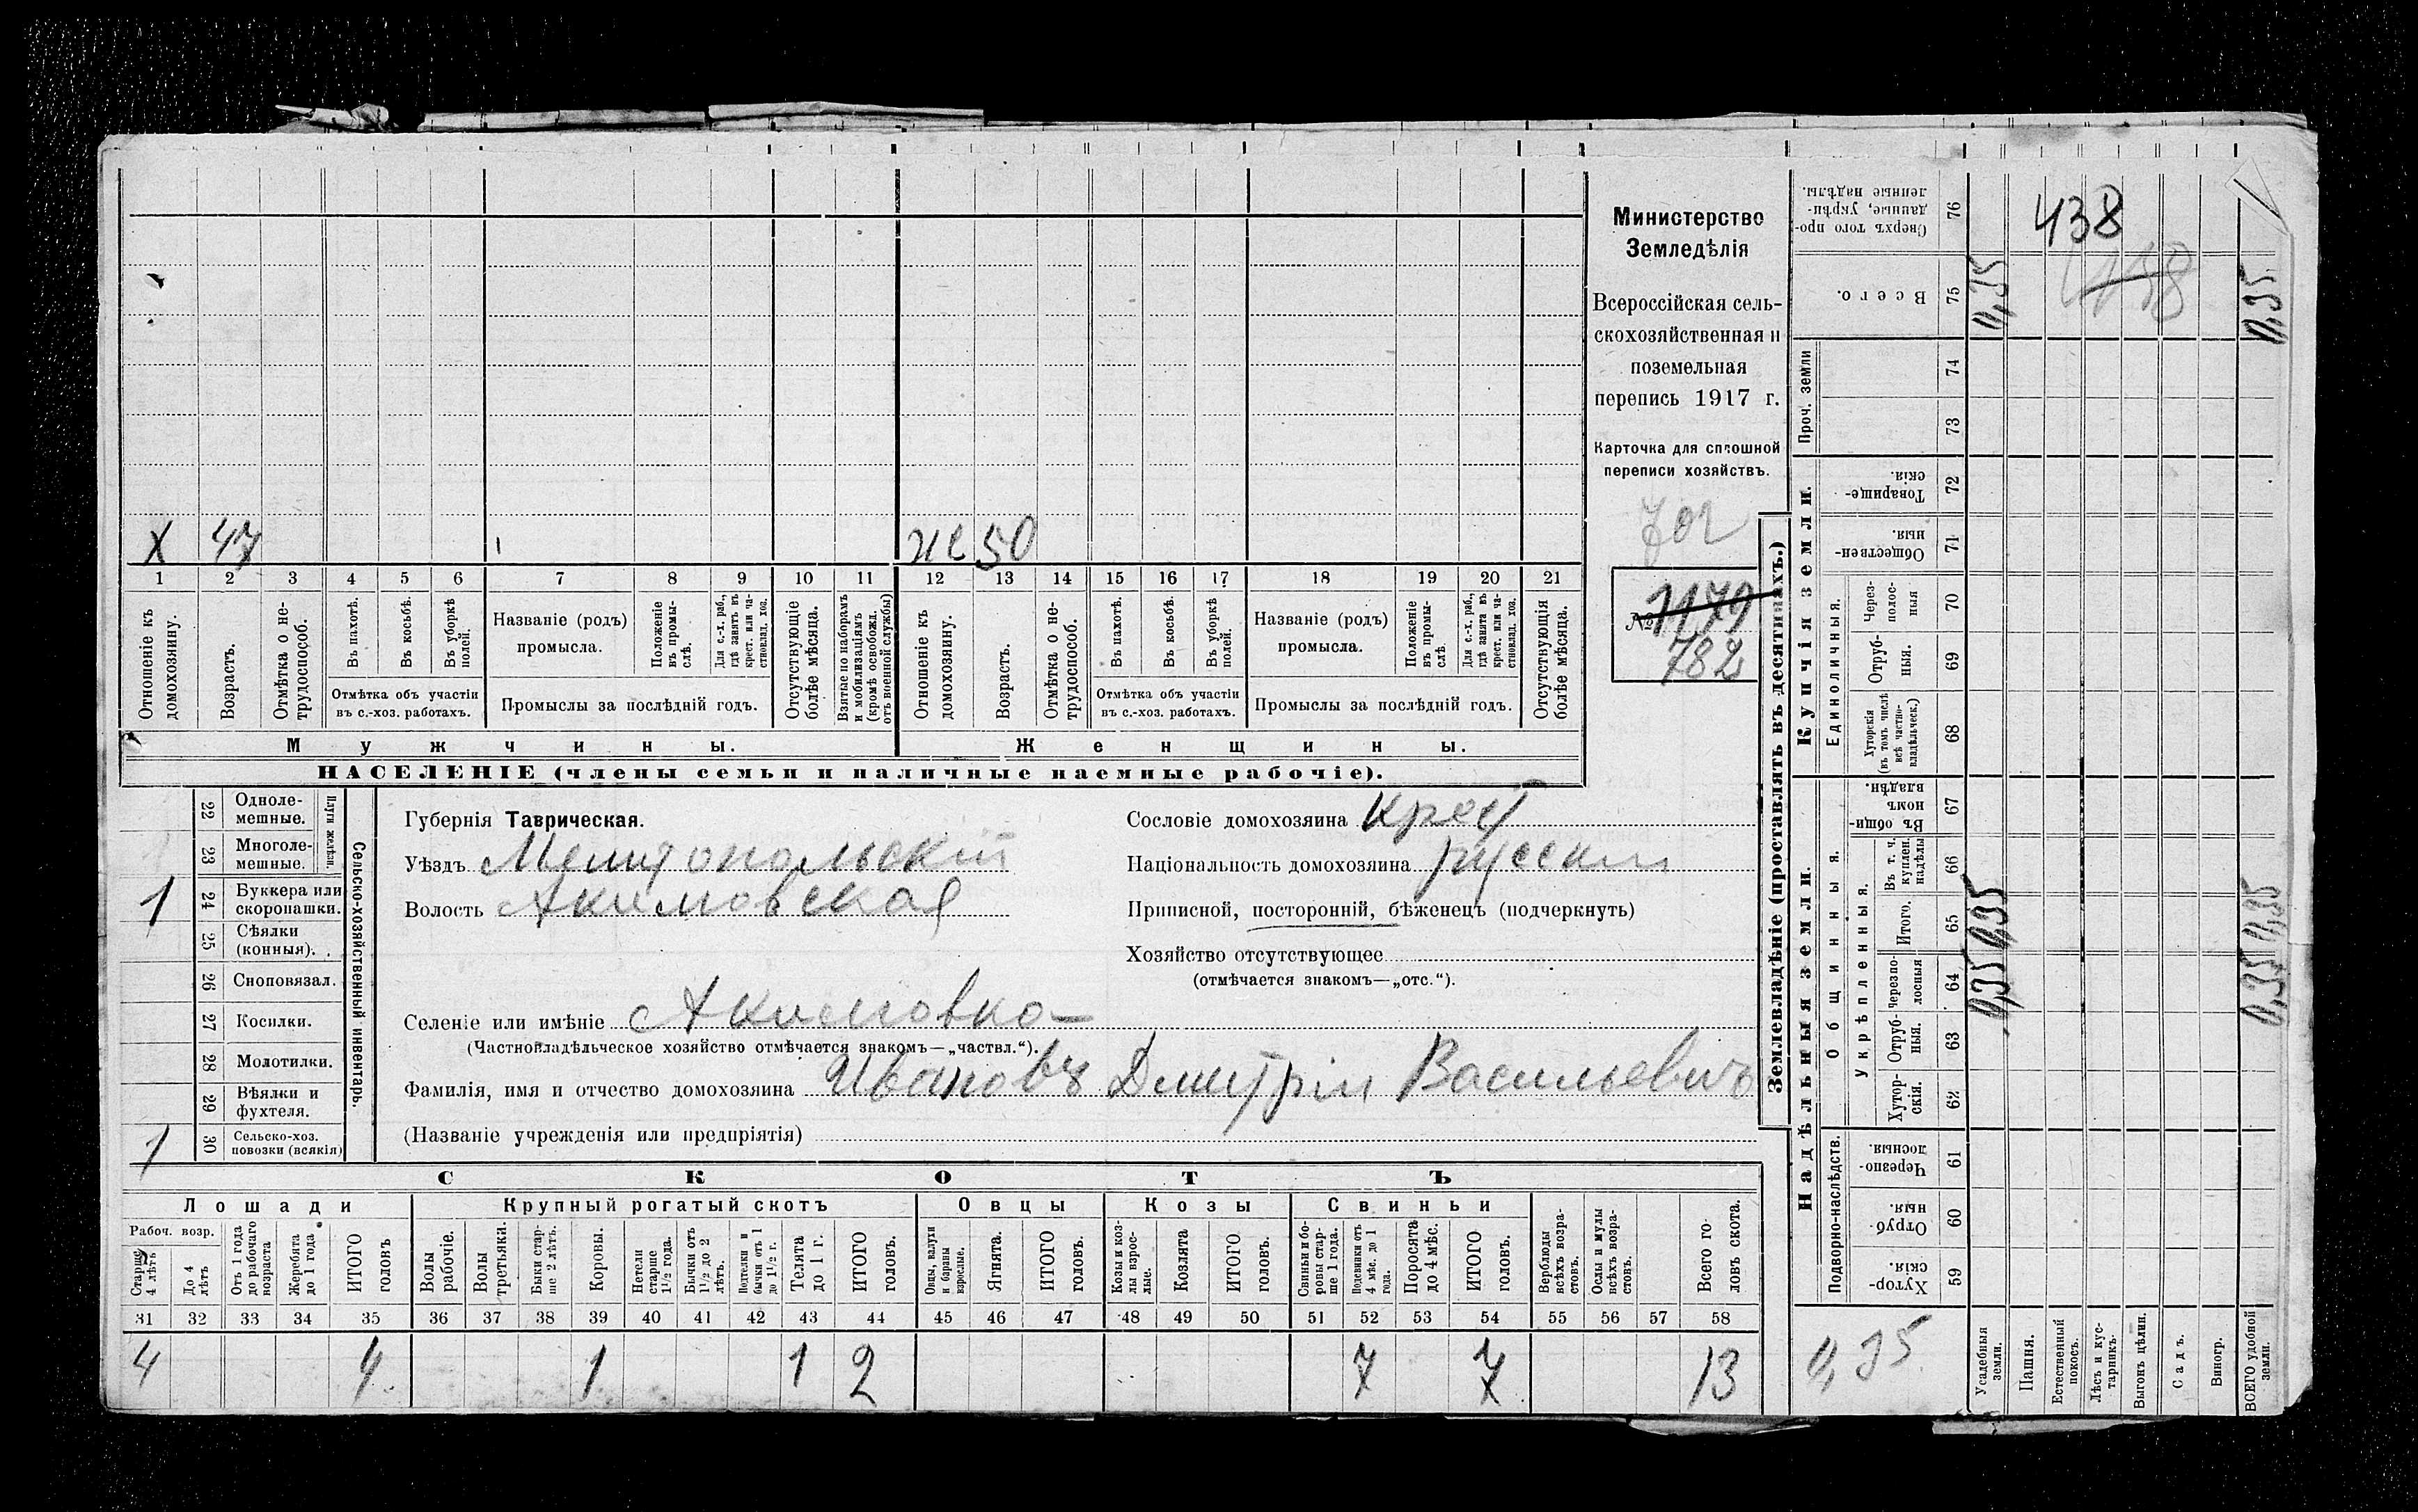 Министерство
Земледѣлія
Всероссійская сель-
скохозяйственная и
поземельная
перепись 1917 г.
Карточка для сплошной
переписи хозяйствъ.
702
№ 1179
782
Х 47
же 50
1 2 3 4 5 6 7 8 9 10 11 12 13 14 15 16 17 18 19 20 21
Отношеніе къ домохозяину.
Возрастъ.
Отмѣтка о не-трудоспособ.
Въ пахотѣ.
Въ косьбѣ.
Въ уборкѣ полей.
Отмѣтка объ участіи
въ с.-хоз. работахъ.
Названіе (родъ)
промысла.
Положеніе въ промы-слѣ.
Для с.-х. раб., гдѣ занятъ въ крест. или ча-стновлад. хоз.
Промыслы за послѣдній годъ.
Отсутствующіе болѣе мѣсяца.
Взятые по наборамъ и мобилизаціямъ (кромѣ освобожд. отъ военной службы)
Отношеніе къ домохозяину.
Возрастъ.
Отмѣтка о не-трудоспособ.
Въ пахотѣ.
Въ косьбѣ.
Въ уборкѣ полей.
Отмѣтка объ участіи
въ с.-хоз. работахъ.
Названіе (родъ)
промысла.
Положеніе въ промы-слѣ.
Для с.-х. раб., гдѣ занята въ крест. или ча-стновлад. хоз.
Промыслы за послѣдній годъ.
Отсутствующія болѣе мѣсяца.
Мужчины.
Женщины.
НАСЕЛЕНІЕ (члены семьи и наличные наемные рабочіе).
Сельско-хозяйственный инвентарь.
Плуги желѣзн.
22 Одноле-мешные.
23 Многоле-мешные.
1 24 Буккера или скоропашки.
25 Сѣялки (конныя).
26 Сноповязал.
27 Косилки.
28 Молотилки.
29 Вѣялки и фухтеля.
1 30 Сельско-хоз. повозки (всякія)
Губернія Таврическая.
Уѣздъ Мелитопольскій
Волость Акимовская
Сословіе домохозяина крест
Національность домохозяина русскій
Приписной, посторонній, бѣженецъ (подчеркнуть)
Хозяйство отсутствующее
(отмѣчается знакомъ—„отс.“).
Селеніе или имѣніе Акимовка
(Частновладѣльческое хозяйство отмѣчается знакомъ—„частвл.“).
Фамилія, имя и отчество домохозяина Ивановъ Дмитрій Васильевичъ
(Названіе учрежденія или предпріятія)
СКОТЪ
Лошади
Крупный рогатый скотъ
Овцы
Козы
Свиньи
Рабоч. возр.
Старше 4 лѣтъ
До 4 лѣтъ
Отъ 1 года до рабочаго возраста
Жеребята до 1 года
ИТОГО головъ
Волы рабочіе.
Волы третьяки.
Быки стар-ше 2 лѣтъ.
Коровы.
Нетели старше 1½ года.
Бычки отъ 1½ до 2 лѣтъ.
Подтелки и бычки отъ 1 до 1½ г.
Телята до 1 г.
ИТОГО головъ.
Овцы, валухи и бараны взрослые.
Ягнята.
ИТОГО головъ.
Козы и коз-лы взрос-лые.
Козлята
ИТОГО головъ.
Свиньи и бо-ровы стар-ше 1 года.
Подсвинки отъ 4 мѣс. до 1 года.
Поросята до 4 мѣс.
ИТОГО головъ.
Верблюды всѣхъ возра-стовъ.
Ослы и мулы всѣхъ возра-стовъ.
Всего го-ловъ скота.
31 32 33 34 35 36 37 38 39 40 41 42 43 44 45 46 47 48 49 50 51 52 53 54 55 56 57 58
4 4 1 1 2 7 7 13
Землевладѣніе (проставлять въ десятинахъ.)
Купчія земли.
Надѣльныя земли.
Сверхъ того про-данные, укрѣп-ленные надѣлы. 76
Всего. 75
Проч. земли 74
73
Товарище-скія. 72
Обществен-ныя. 71
Единоличныя.
Через-полос-ныя 70
Отруб-ныя. 69
Хуторскія (въ томъ числѣ всѣ частно-владѣльческ.) 68
Общинныя.
Въ общин-номъ владѣн. 67
Укрѣпленныя.
Въ т. ч. куплен. надѣлы 66
Итого. 65
Черезпо-лосныя 64
Отруб-ныя. 63
Хутор-скія. 62
Подворно-наслѣдств.
Черезпо-лосныя. 61
Отруб-ныя. 60
Хутор-скія. 59
438
0,35
0,35
0,35 0,35
0,35 0,35
0,35
Усадебныя земли.
Пашня.
Естественный покосъ.
Лѣсъ и кус-тарникъ.
Выгонъ цѣлин.
Садъ.
Виногр.
ВСЕГО удобной земли.